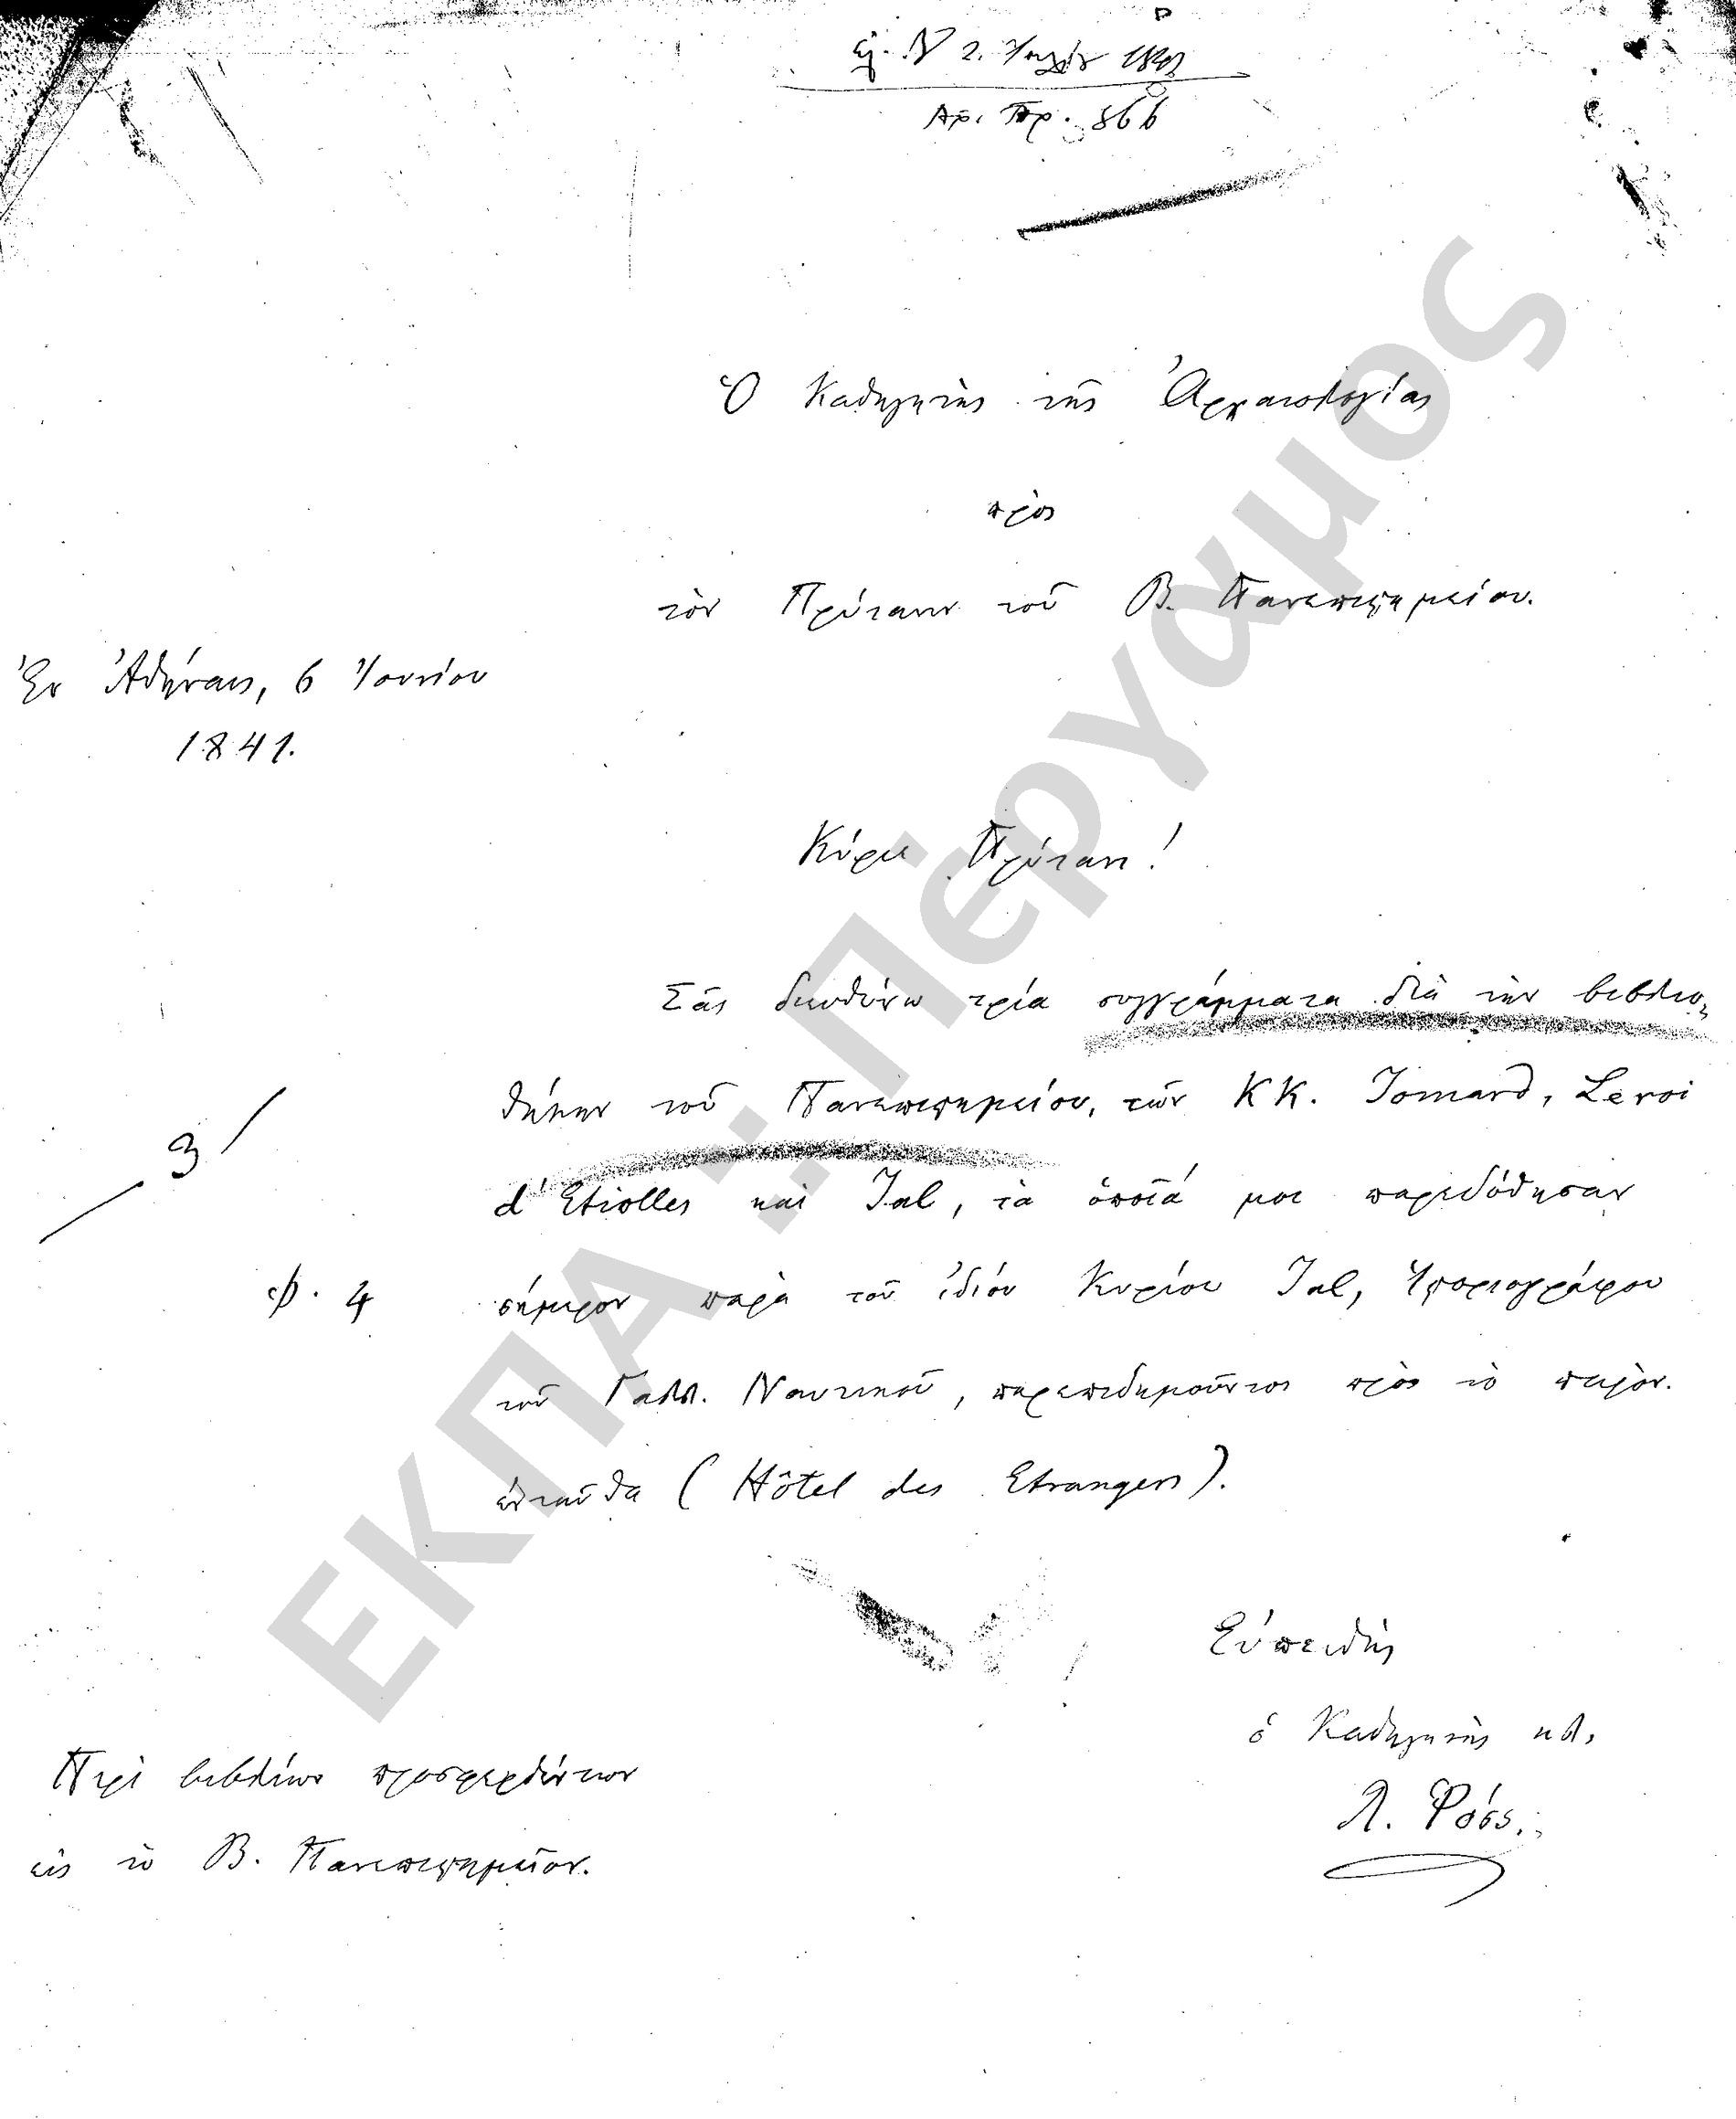 2. 1841
Ἀρ. Πρ. 866
Ὁ Καθηγητὴς τῆς Ἀρχαιολογίας
πρὸς
τὸν Πρύτανιν τοῦ Β. Πανεπιστημείου.
Ἐν Ἀθήναις, 6 Ἰουνίου
1841.
Κύριε Πρύτανι!
Σᾶς διευθύνω τρία συγγράμματα διὰ τὴν βιβλιο-
θήκην τοῦ Πανεπιστημείου, τῶν ΚΚ. Jomard, Leroi
3
d'Etiolles καὶ Jal, τὰ ὁποῖά μοι παρεδόθησαν
φ. 4
σήμερον παρὰ τοῦ ἰδίου Κυρίου Jal, Ἱστοριογράφου
τοῦ Γαλλ. Ναυτικοῦ, παρεπιδημοῦντος πρὸς τὸ παρὸν
ἐνταῦθα (Hôtel des Etrangers).
Εὐπειθὴς
ὁ Καθηγητὴς κλ.
Λ. Ῥόσς.
Περὶ βιβλίων προσφερθέντων
εἰς τὸ Β. Πανεπιστημεῖον.
ΕΚΠΑ :: Πέργαμος